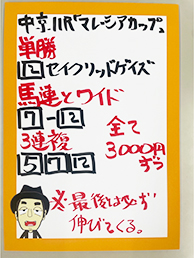 中京11R「マレーシアカップ」
単勝
12セイクリッドゲイズ
馬連とワイド
7-12 全て
3連複 3000円
5 7 12 ずつ
※最後は必ず
伸びてくる。